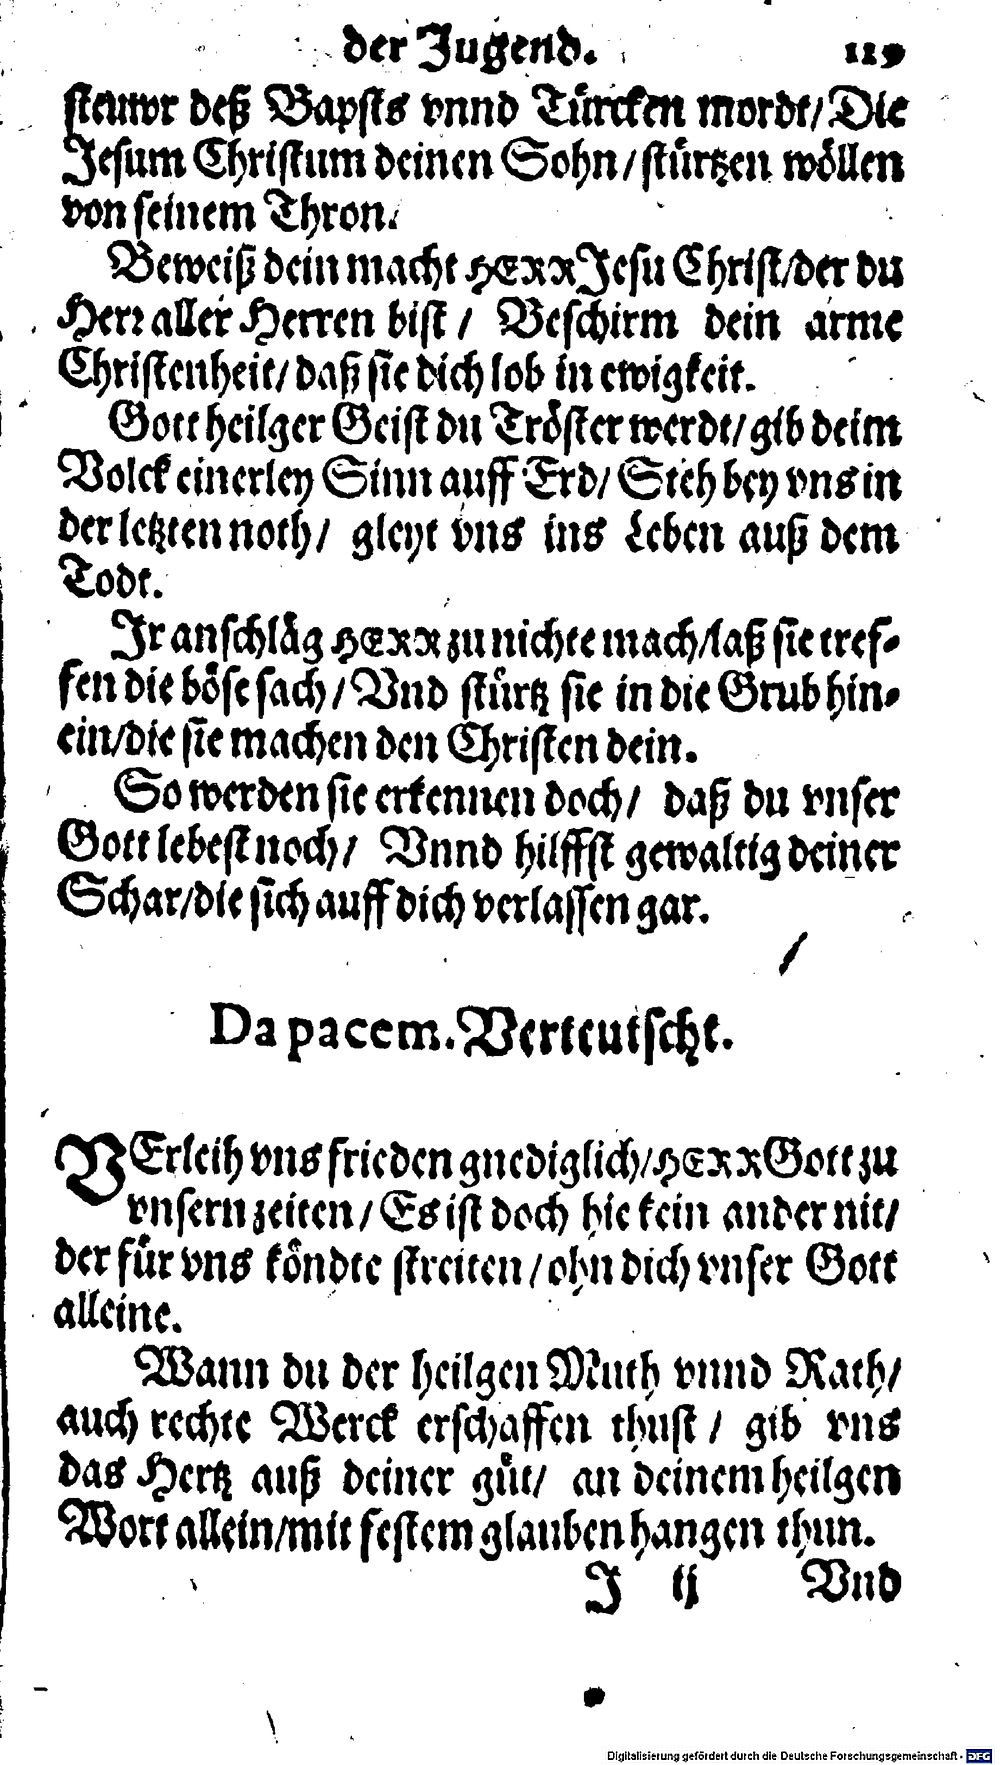 der Jugend. 119
steuwr deß Bapsts vnnd Türcken mordt/ Die
Jesum Christum deinen Sohn/ stürtzen wöllen
von seinem Thron.
Beweiß dein macht HERR Jesu Christ/ der du
Herr aller Herren bist/ Beschirm dein arme
Christenheit/ daß sie dich lob in ewigkeit.
Gott heilger Geist du Tröster werdt/ gib deim
Volck einerley Sinn auff Erd/ Steh bey vns in
der letzten noth/ gleyt vns ins Leben auß dem
Todt.
Ir anschläg HERR zu nichte mach/ laß sie tref-
fen die böse sach/ Vnd stürtz sie in die Grub hin-
ein/ die sie machen den Christen dein.
So werden sie erkennen doch/ daß du vnser
Gott lebest noch/ Vnnd hilffst gewaltig deiner
Schar/ die sich auff dich verlassen gar.
Da pacem. Verteutscht.
VErleih vns frieden gnediglich/ HERR Gott zu
vnsern zeiten/ Es ist doch hie kein ander nit/
der für vns köndte streiten/ ohn dich vnser Gott
alleine.
Wann du der heilgen Muth vnnd Rath/
auch rechte Werck erschaffen thust/ gib vns
das Hertz auß deiner güt/ an deinem heilgen
Wort allein/ mit festem glauben hangen thun.
J ij Vnd
Digitalisierung gefördert durch die Deutsche Forschungsgemeinschaft - DFG